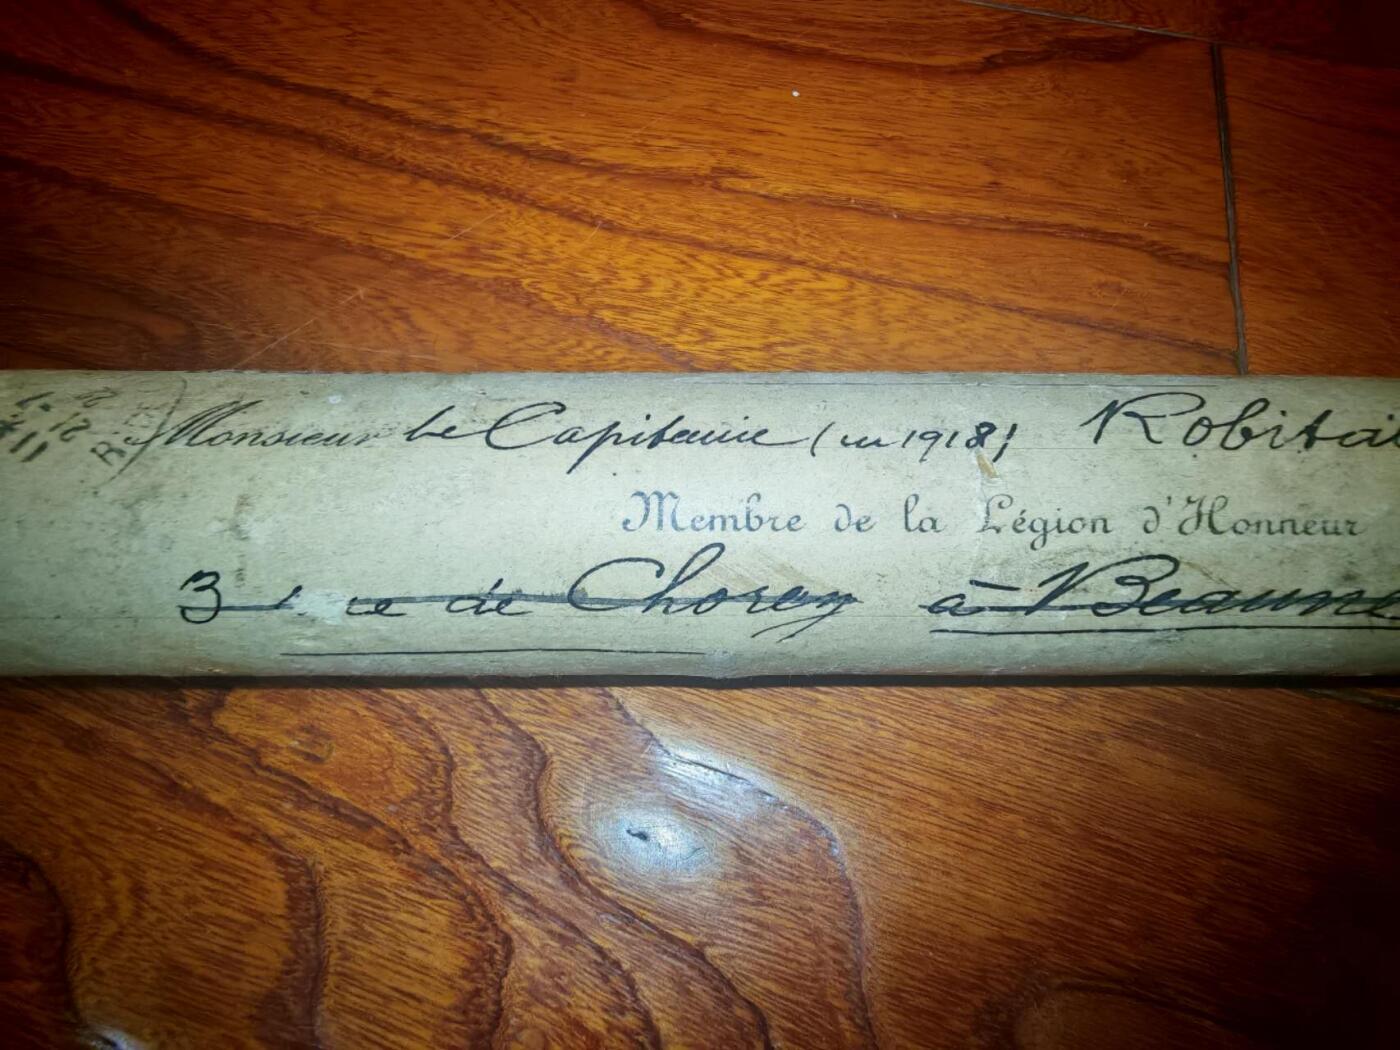 Monsieur le Capitaine (en 1918) Robitai
Membre de la Légion d'Honneur
3 rue de Chorey à Beaune